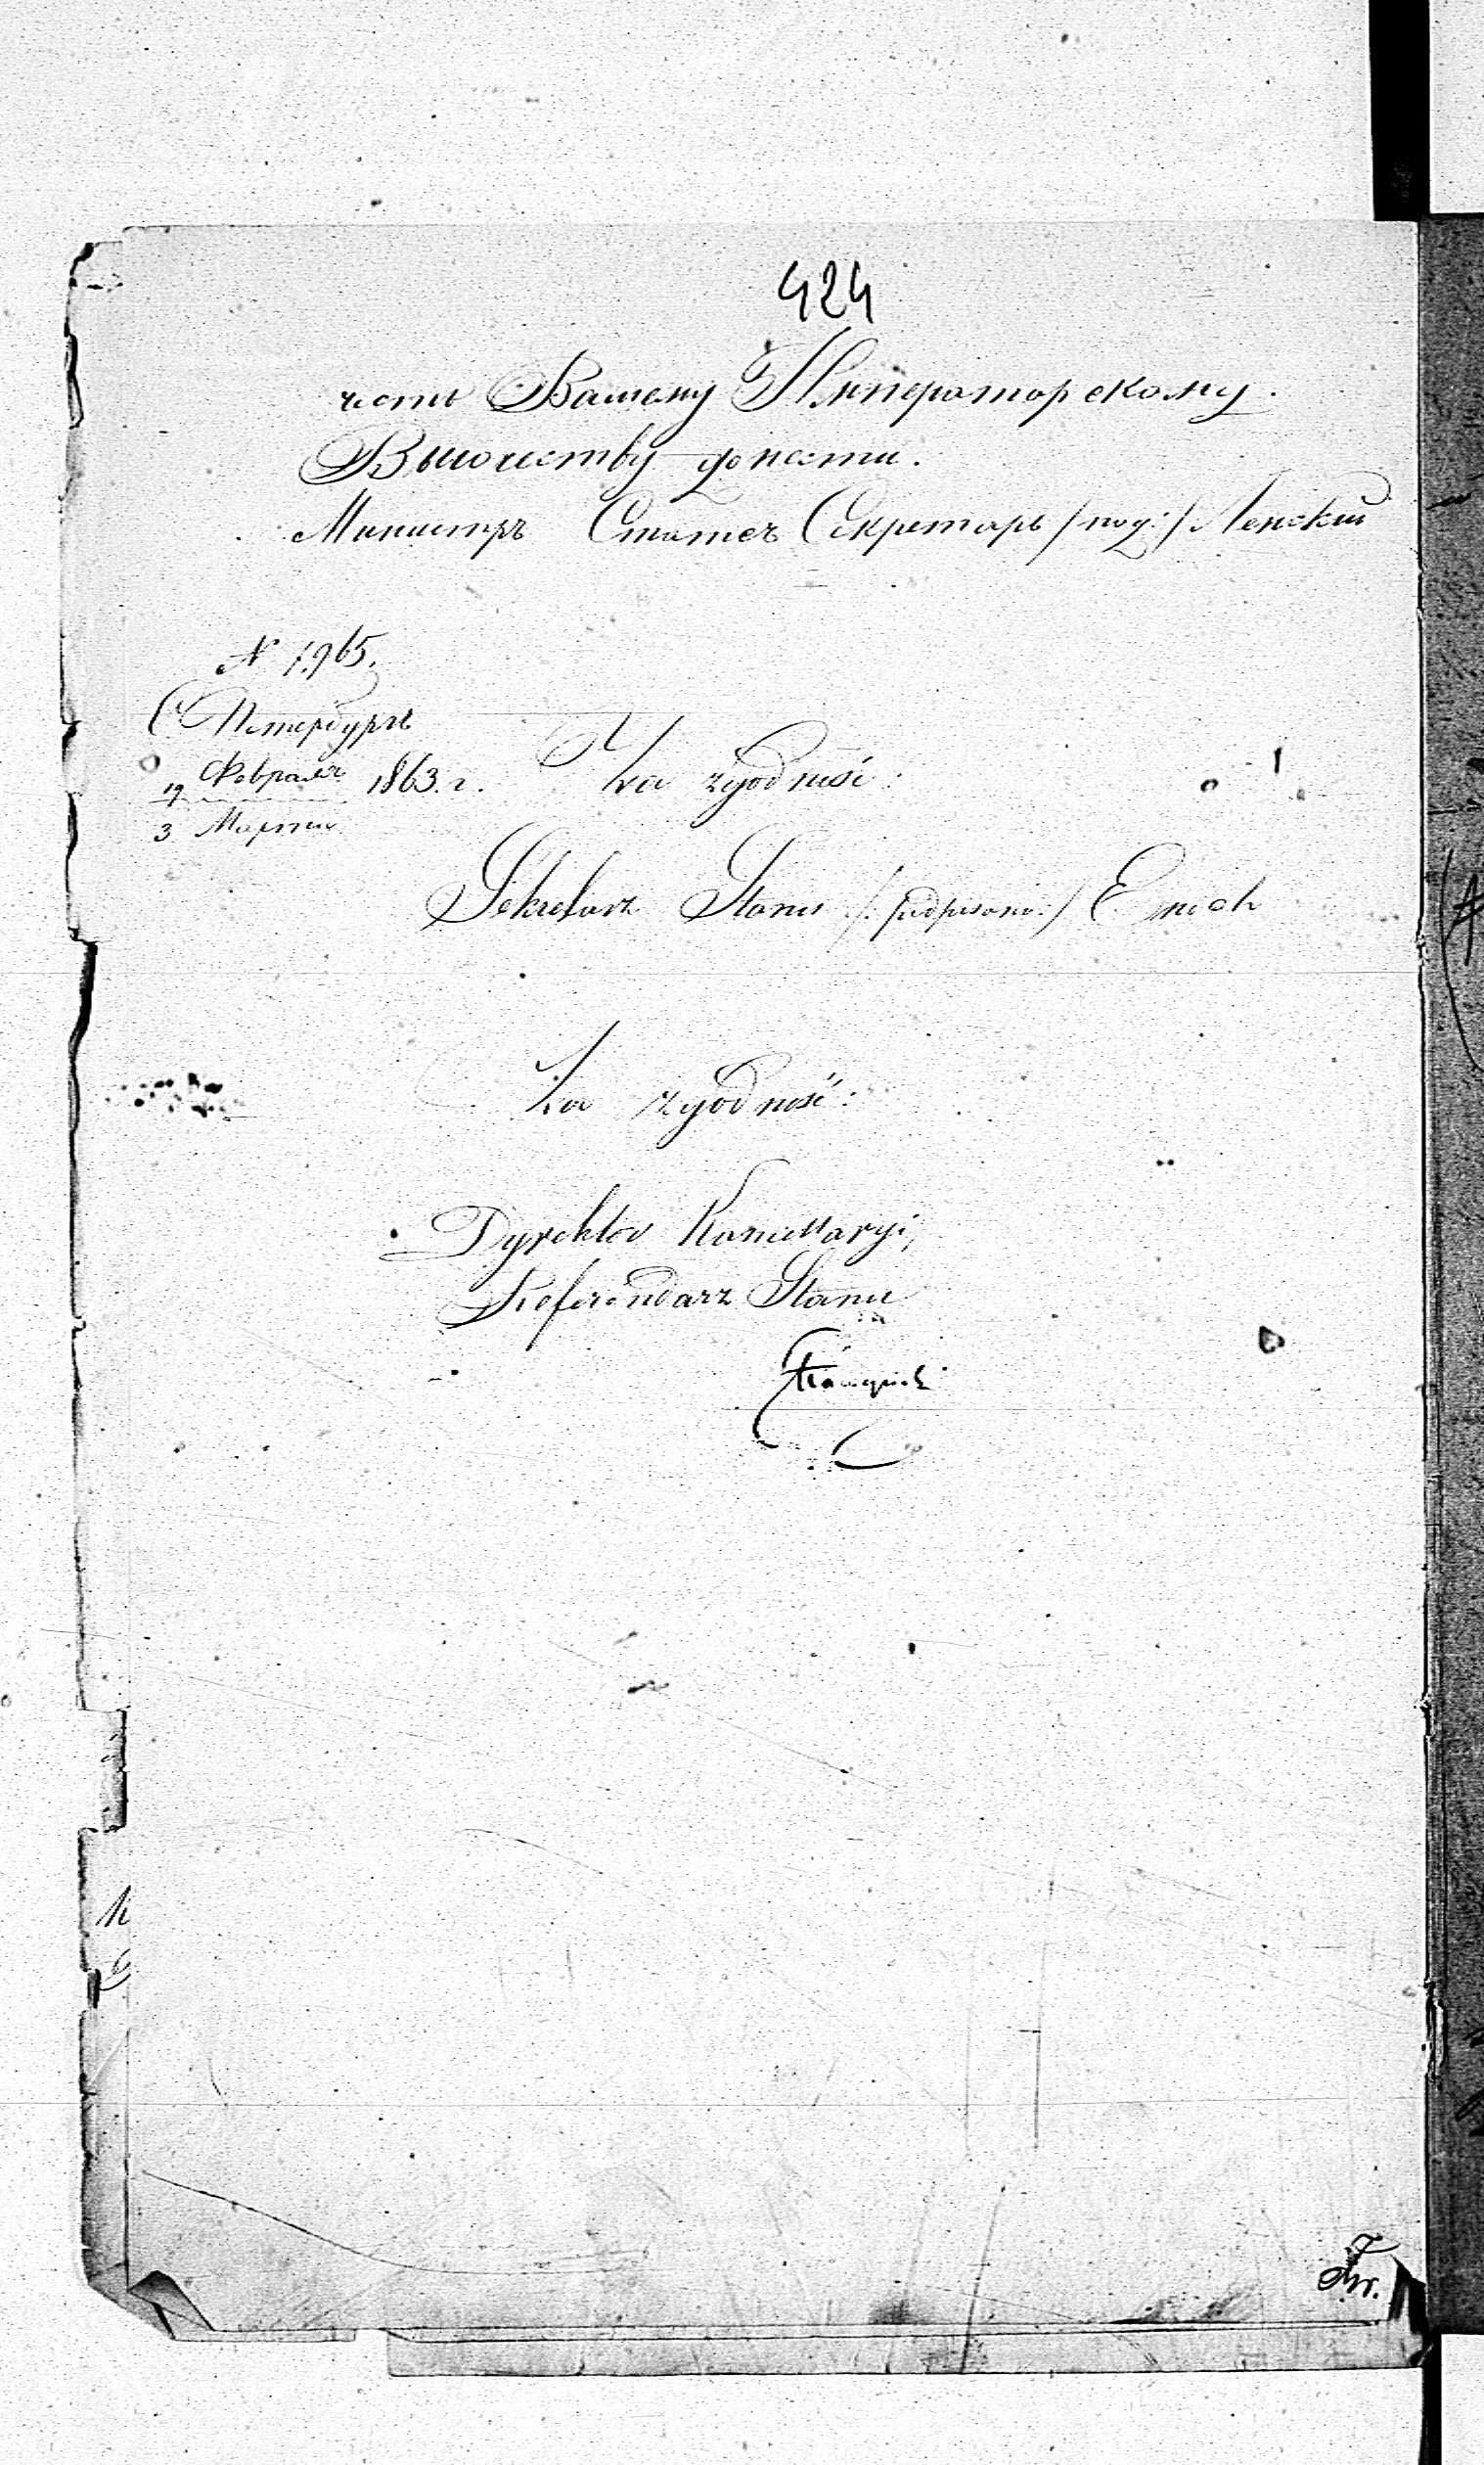 424
честь Вашему Императорскому
Высочеству донести.
Министръ Статсъ Секретарь /под:/ Ленский
N 1,965.
С Петербургъ
19 Февраля 1863. г.
3 Марта
Za zgodność:
Sekretarz Stanu /: podpisano:/ Enoch
Za zgodność:
Dyrektor Kancellaryi,
Referendarz Stanu